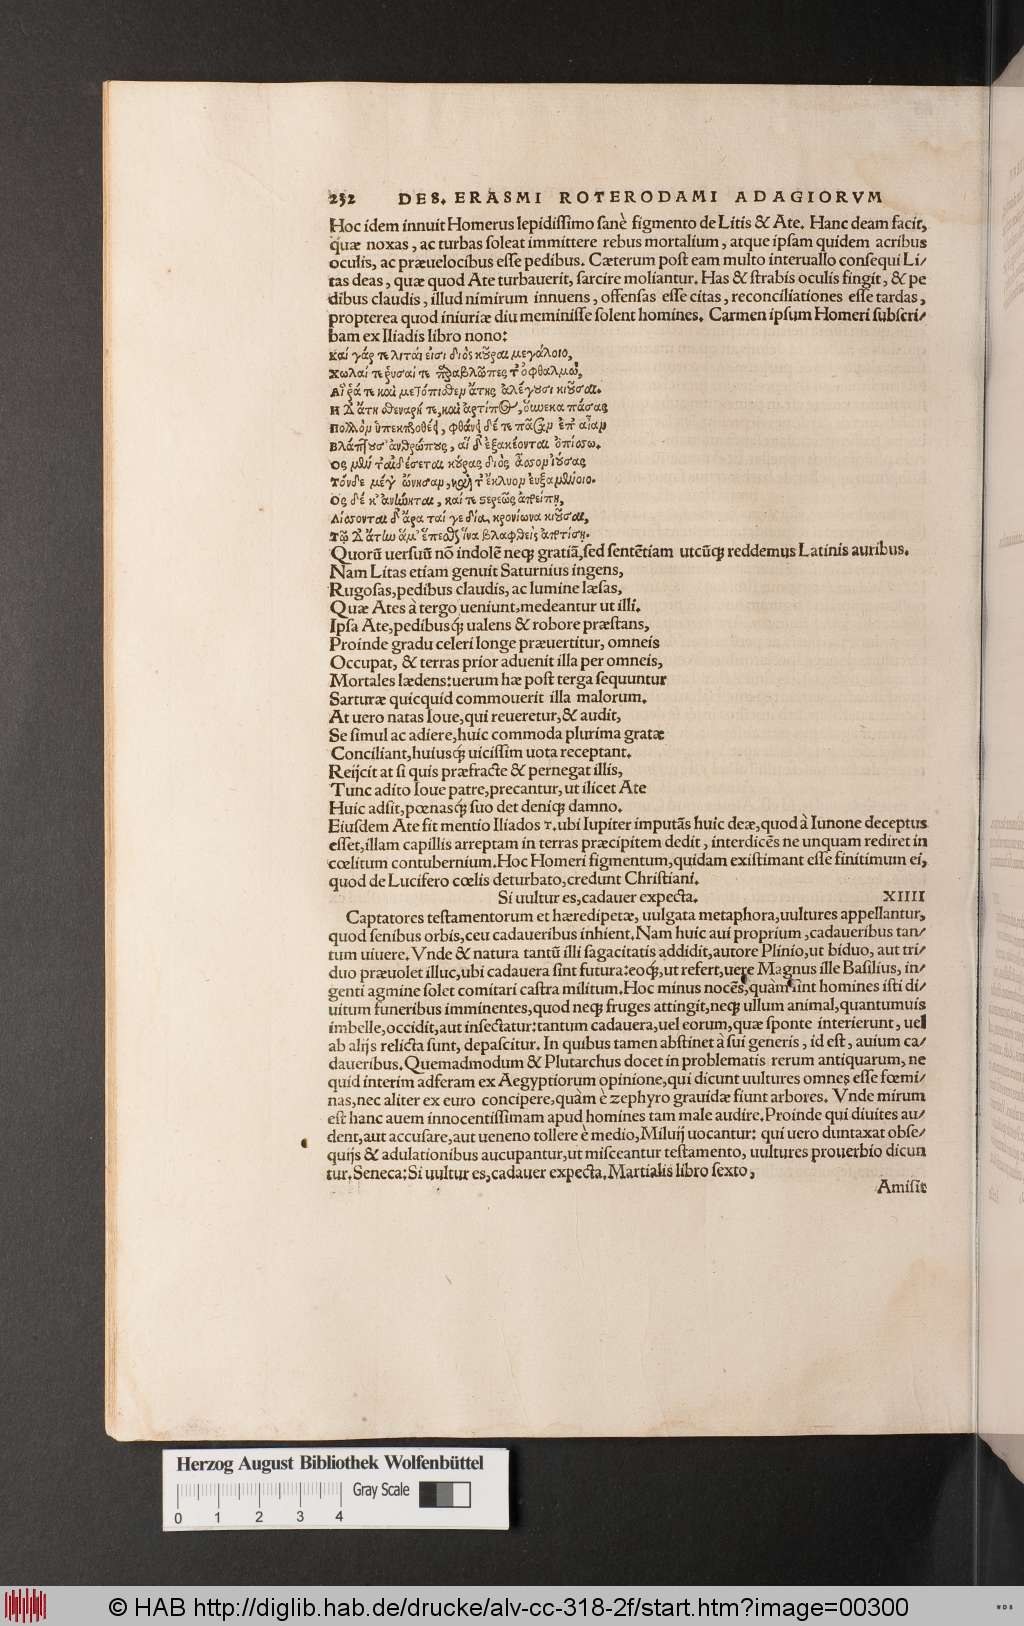 252 DES. ERASMI ROTERODAMI ADAGIORVM
Hoc idem innuit Homerus lepidiſſimo ſanè figmento de Litis & Ate. Hanc deam facit,
quæ noxas, ac turbas ſoleat immittere rebus mortalium, atque ipſam quidem acribus
oculis, ac præuelocibus eſſe pedibus. Cæterum poſt eam multo interuallo conſequi Li/
tas deas, quæ quod Ate turbauerit, ſarcire moliantur. Has & ſtrabis oculis fingit, & pe
dibus claudis, illud nimirum innuens, offenſas eſſe citas, reconciliationes eſſe tardas,
propterea quod iniuriæ diu meminiſſe ſolent homines. Carmen ipſum Homeri ſubſcri/
bam ex Iliadis libro nono:
Καί γάρ τε λιτάι εἰσι διὸς κοῦραι μεγάλοιο,
Χωλαί τε ῥυσαί τε παραβλῶπες τ' ὀφθαλμώ,
Αἵ ῥά τε καὶ μετόπισθεν ἄτης ἀλέγουσι κιοῦσαι.
Η δ' ἄτη σθεναρή τε, καὶ ἀρτίπος, οὕνεκα πάσας
Πολλὸν ὑπεκπροθέει, φθάνει δέ τε πᾶσαν ἐπ' αἶαν
Βλάπτουσ' ἀνθρώπους, αἱ δ' ἐξακέονται ὀπίσσω.
Ος μὲν τ' αἰδέσεται κούρας διὸς ἆσσον ἰούσας
Τόνδε μέγ' ὤνησαν, καὶ τ' ἔκλυον εὐξαμένοιο.
Ος δέ κ' ἀνήνηται, καί τε στερεῶς ἀπείπῃ,
Λίσσονται δ' ἄρα ταί γε δία κρονίωνα κιοῦσαι,
Τῷ δ' ἄτην ἅμ' ἕπεσθαι ἵνα βλαφθεὶς ἀποτίσῃ.
Quorũ uerſuũ nõ indolẽ neqꝫ gratiã, ſed ſentẽtiam utcũqꝫ reddemus Latinis auribus.
Nam Litas etiam genuit Saturnius ingens,
Rugoſas, pedibus claudis, ac lumine læſas,
Quæ Ates à tergo ueniunt, medeantur ut illi.
Ipſa Ate, pedibusqꝫ ualens & robore præſtans,
Proinde gradu celeri longe præuertitur, omneis
Occupat, & terras prior aduenit illa per omneis,
Mortales lædens: uerum hæ poſt terga ſequuntur
Sarturæ quicquid commouerit illa malorum.
At uero natas Ioue, qui reueretur, & audit,
Se ſimul ac adiere, huic commoda plurima gratæ
Conciliant, huiusqꝫ uiciſſim uota receptant.
Reijcit at ſi quis præfracte & pernegat illis,
Tunc adito Ioue patre, precantur, ut ilicet Ate
Huic adſit, pœnasqꝫ ſuo det deniqꝫ damno.
Eiuſdem Ate fit mentio Iliados τ. ubi Iupiter imputãs huic deæ, quod à Iunone deceptus
eſſet, illam capillis arreptam in terras præcipitem dedit, interdicẽs ne unquam rediret in
cœlitum contubernium. Hoc Homeri figmentum, quidam exiſtimant eſſe finitimum ei,
quod de Lucifero cœlis deturbato, credunt Chriſtiani.
Si uultur es, cadauer expecta. XIIII
Captatores teſtamentorum et hæredipetæ, uulgata metaphora, uultures appellantur,
quod ſenibus orbis, ceu cadaueribus inhient. Nam huic aui proprium, cadaueribus tan/
tum uiuere. Vnde & natura tantũ illi ſagacitatis addidit, autore Plinio, ut biduo, aut tri/
duo præuolet illuc, ubi cadauera ſint futura: eoqꝫ, ut refert, uere Magnus ille Baſilius, in/
genti agmine ſolet comitari caſtra militum. Hoc minus nocẽs, quàm ſint homines iſti di/
uitum funeribus imminentes, quod neqꝫ fruges attingit, neqꝫ ullum animal, quantumuis
imbelle, occidit, aut inſectatur: tantum cadauera, uel eorum, quæ ſponte interierunt, uel
ab alijs relicta ſunt, depaſcitur. In quibus tamen abſtinet à ſui generis, id eſt, auium ca/
daueribus. Quemadmodum & Plutarchus docet in problematis rerum antiquarum, ne
quid interim adferam ex Aegyptiorum opinione, qui dicunt uultures omnes eſſe fœmi/
nas, nec aliter ex euro concipere, quàm è zephyro grauidæ fiunt arbores. Vnde mirum
eſt hanc auem innocentiſſimam apud homines tam male audire. Proinde qui diuites au/
dent, aut accuſare, aut ueneno tollere è medio, Miluij uocantur: qui uero duntaxat obſe/
quijs & adulationibus aucupantur, ut miſceantur teſtamento, uultures prouerbio dicun
tur. Seneca: Si uultur es, cadauer expecta. Martialis libro ſexto,
Amiſit
Herzog August Bibliothek Wolfenbüttel
Gray Scale
0 1 2 3 4
© HAB http://diglib.hab.de/drucke/alv-cc-318-2f/start.htm?image=00300